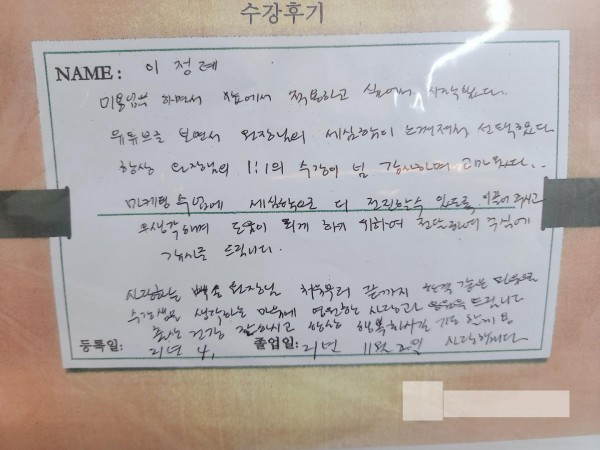 수강후기
NAME: 이정례
미용업을 하면서 샵에서 접목하고 싶어서 시작했다.
유튜브를 보면서 원장님의 세심함이 느껴져서 선택했다
항상 원장님의 1:1의 수강이 넘 감사하며 고마웠다..
수업에 세심함으로 더 전진할수 있도록 이끌어 주시고
생각하며 도움이 되게 하기 위하여
감사를 드립니다.
사랑하는 원장님 처음부터 끝까지 한결 같은 마음으로
수강생을 생각하는 마음에 영원한 사랑과 응원을 드립니다
항상 건강 잘하시고 항상 행복하시길 기도
등록일: 21년 4, 졸업일: 21년 11월 2일 사랑합니다